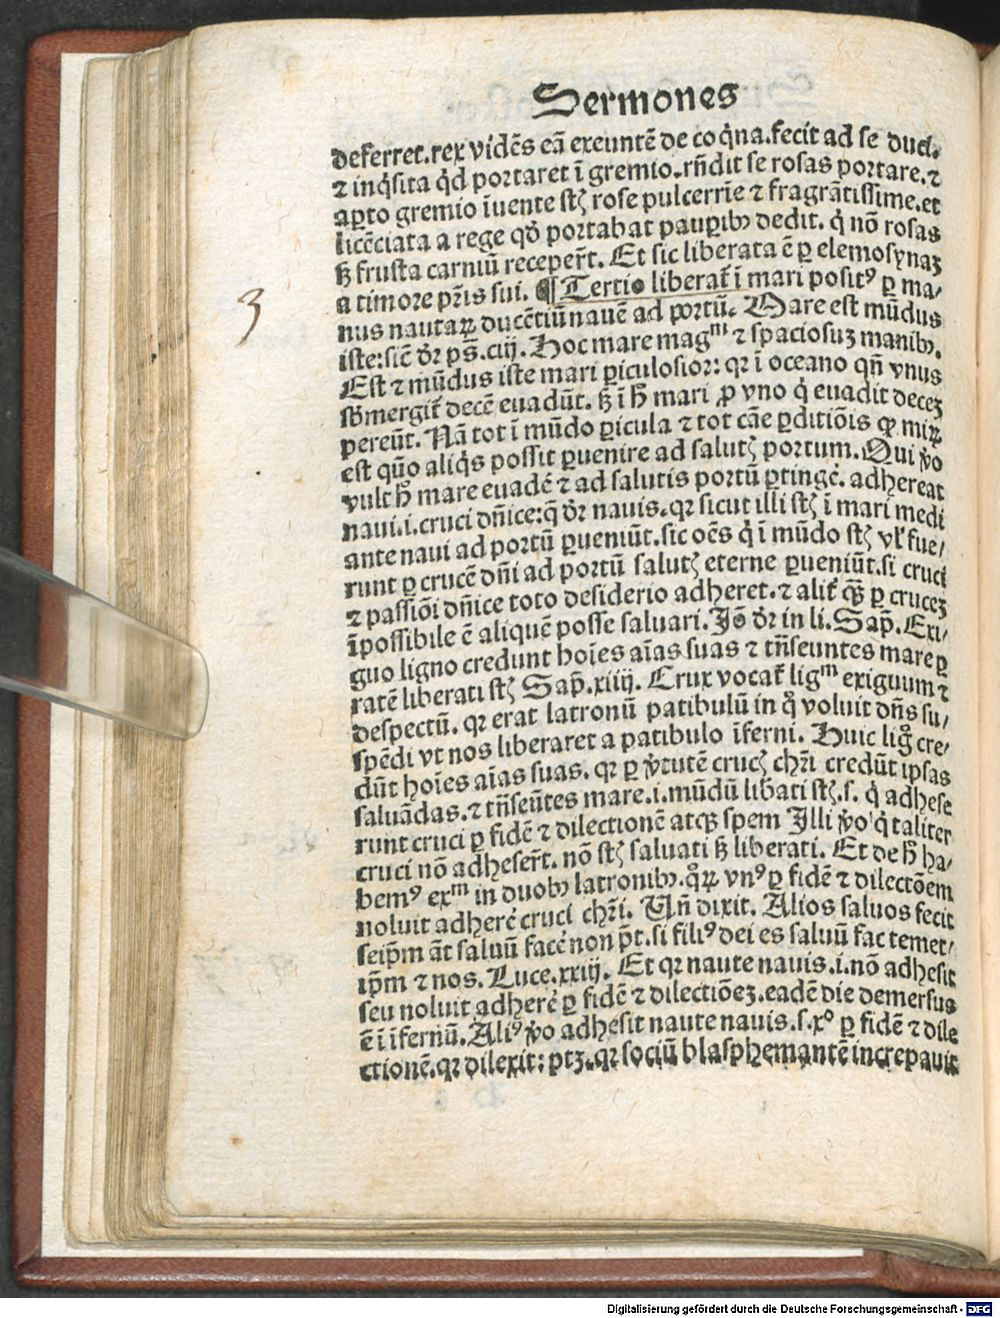 Sermones
deferret.rex vidēs eā exeuntē de coq̇na.fecit ad se duci.
⁊ inq̇sita q̇d portaret ī gremio.rñdit se rosas portare.⁊
aꝑto gremio īuente stꝫ rose pulcerrīe ⁊ fragrātissime.et
licēciata a rege qð portabat pauꝑibꝰ dedit. q̇ nō rosas
sꝫ frusta carniū receper̄t. Et sic liberata ē ꝑ elemosynaꝫ
a timore pr̄is sui. ¶ Tertio liberat̄ ī mari positꝰ ꝑ ma/
nus nautaꝝ ducētiū nauē ad portū. Mare est mūdus
iste:sic̄ dr̄ ps̄.ciij. Hoc mare magᵐ ⁊ spaciosuꝫ manibꝰ.
Est ⁊ mūdus iste mari ꝑiculosior: qꝛ ī oceano qñ vnus
sb̄mergit̄ decē euadūt. sꝫ ī h̄ mari ꝓ vno q̇ euadit deceꝫ
pereūt. Nā tot ī mūdo ꝑicula ⁊ tot cāe ꝑditiōis ꝙ miꝝ
est quō aliq̇s possit ꝑuenire ad salutꝫ portum. Qui v̊o
vult h̄ mare euadē ⁊ ad salutis portū ꝑtingē. adhereat
naui.i.cruci dñice:q̄ dr̄ nauis.qꝛ sicut illi stꝫ ī mari medi
ante naui ad portū ꝑueniūt.sic oēs q̇ ī mūdo stꝫ vl̄ fue/
runt ꝑ crucē dñi ad portū salutꝫ eterne ꝑueniūt.si cruci
⁊ passiōi dñice toto desiderio adheret.⁊ alit̄ qꝫ ꝑ cruceꝫ
īpossibile ē aliquē posse saluari. Jō dr̄ in li. Sap̄. Exi/
guo ligno credunt hoīes aīas suas ⁊ trñseuntes mare ꝑ
ratē liberati stꝫ Sap̄.xiiij. Crux vocat̄ ligᵐ exiguum ⁊
despectū. qꝛ erat latronū patibulū in q̊ voluit dñs su/
spēdi vt nos liberaret a patibulo īferni. Huic lig̊ cre/
dūt hoīes aīas suas. qꝛ ꝑ v̊tutē crucꝫ chr̄i credūt ipsas
saluādas.⁊ trñseūtes mare.i.mūdū lib̄ati stꝫ.s. q̇ adhese
runt cruci ꝑ fidē ⁊ dilectionē atqꝫ spem Illi v̊o q̇ taliter
cruci nō adheser̄t. nō stꝫ saluati sꝫ liberati. Et de h̄ ha/
bemꝰ exᵐ in duobꝰ latronibꝰ.q̊ꝝ vnꝰ ꝑ fidē ⁊ dilectōem
noluit adherē cruci chr̄i. Uñ dixit. Alios saluos fecit
seip̄m āt saluū facē non p̄t.si filiꝰ dei es saluū fac temet/
ip̄m ⁊ nos. Luce.xxiij. Et qꝛ naute nauis.i.nō adhesit
seu noluit adherē ꝑ fidē ⁊ dilectiōeꝫ.eadē die demersus
ē ī īfernū. Aliꝰ v̊o adhesit naute nauis.s.xᵒ ꝑ fidē ⁊ dile
ctionē.qꝛ dilexit: ptꝫ.qꝛ sociū blasphemantē increpauit
3
Digitalisierung gefördert durch die Deutsche Forschungsgemeinschaft - DFG